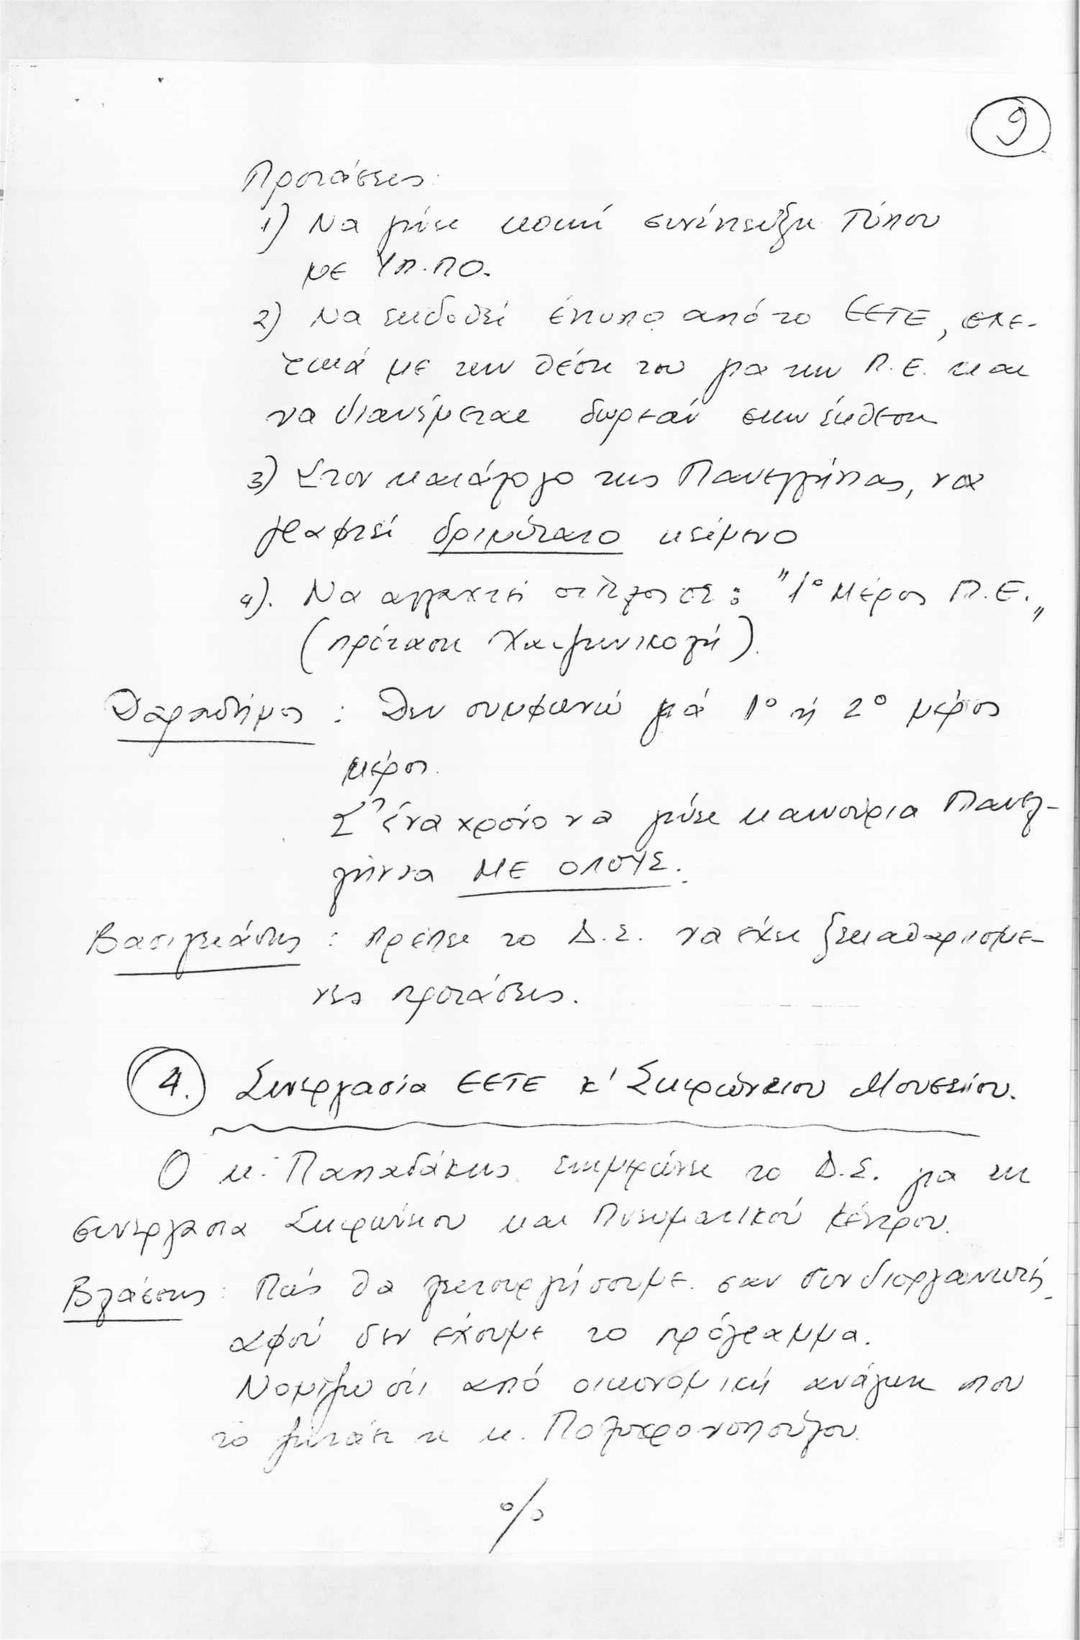 9
Προτάσεις:
1) Να γίνει κοινή συνέντευξη Τύπου
με ΥΠ.ΠΟ.
2) Να εκδοθεί έντυπο από το ΕΕΤΕ, σχε-
τικά με την θέση του για την Π.Ε. και
να διανέμεται δωρεάν στην έκθεση
3) Στον κατάλογο της Πανελλήνιας, να
γραφτεί δριμύτατο κείμενο
4). Να αλλαχτεί ο τίτλος σε: "1ο Μέρος Π.Ε."
(πρόταση Χατζηνικολή).
Παραδήμος : Δεν συμφωνώ γιά 1ο ή 2ο μέρος
μέρος.
Σ' ένα χρόνο να γίνει καινούρια Πανελ-
λήνια ΜΕ ΟΛΟΥΣ.
Βασιλειάδης : Πρέπει το Δ.Σ. να έχει ξεκαθαρισμέ-
νες προτάσεις.
4. Συνεργασία ΕΕΤΕ κ' Σκιρώνειου Μουσείου.
Ο κ. Παπαδάκης ενημέρωσε το Δ.Σ. για τη
συνεργασία Σκιρώνειου και Πνευματικού Κέντρου.
Βλάσσης : Πώς θα λειτουργήσουμε σαν συνδιοργανωτές,
αφού δεν έχουμε το πρόγραμμα.
Νομίζω ότι από οικονομική ανάγκη που
το ζητάει η κ. Πολυχρονοπούλου.
%